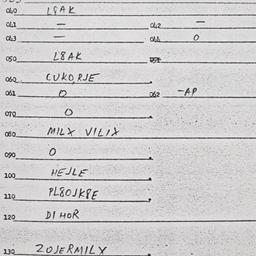 040 L8AK
041 — 042 —
043 — 044 0
050 L8AK
060 CUKORJE
061 0 062 -AP
070 0
080 MILX VILIX
090 0
100 HEJLE
110 PL8OJK8E
120 DI HOR
130 ZOJERMILX